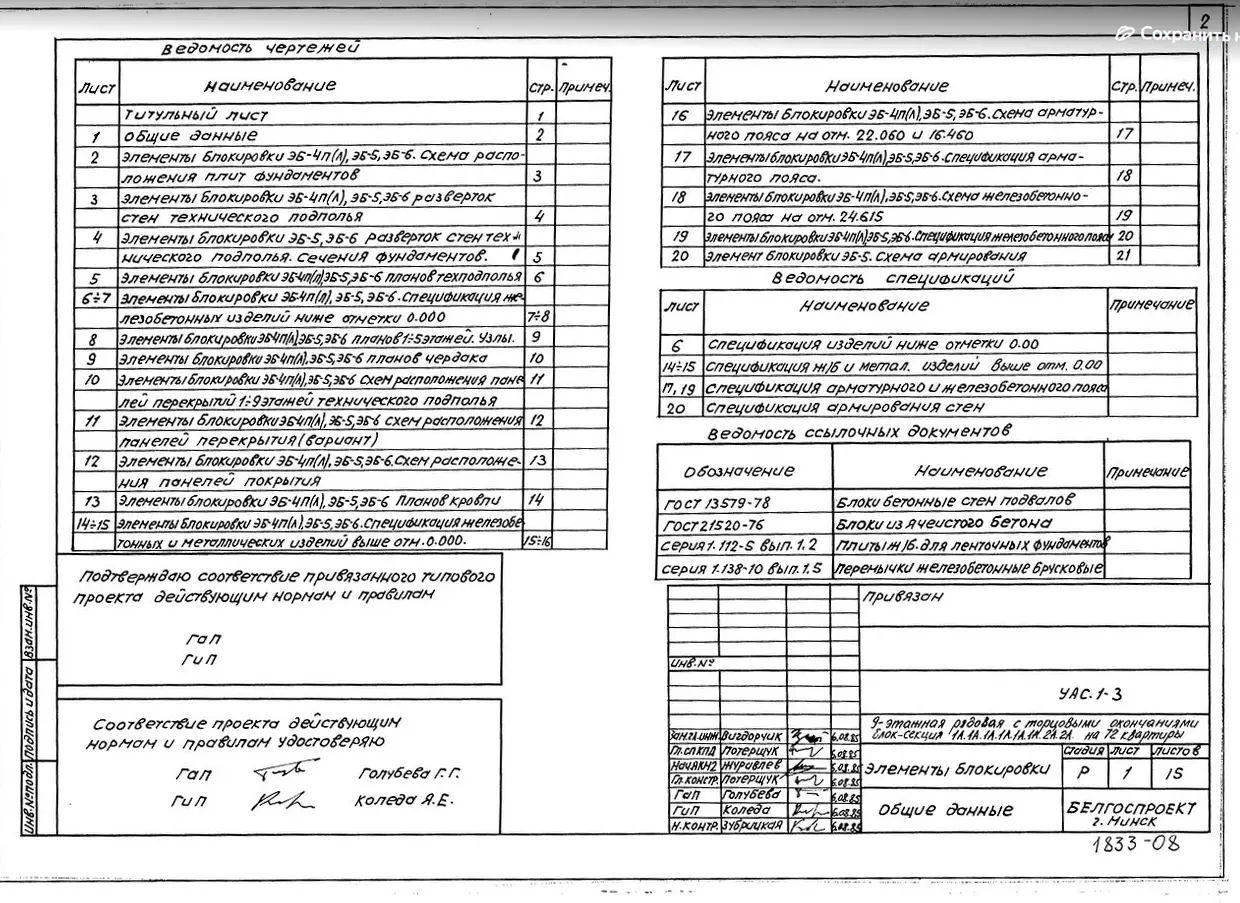 2
Сохранить
Ведомость чертежей
Лист Наименование Стр. Примеч.
Титульный лист 1
1 Общие данные 2
2 Элементы блокировки ЭБ-4п(л), ЭБ-5, ЭБ-6. Схема распо-
ложения плит фундаментов 3
3 Элементы блокировки ЭБ-4п(л), ЭБ-5, ЭБ-6 разверток
стен технического подполья 4
4 Элементы блокировки ЭБ-5, ЭБ-6 разверток стен тех-
нического подполья. Сечения фундаментов. 5
5 Элементы блокировки ЭБ-4п(л), ЭБ-5, ЭБ-6 планов техподполья 6
6÷7 Элементы блокировки ЭБ-4п(л), ЭБ-5, ЭБ-6. Спецификация же-
лезобетонных изделий ниже отметки 0.000 7÷8
8 Элементы блокировки ЭБ-4п(л), ЭБ-5, ЭБ-6 планов 1÷5 этажей. Узлы. 9
9 Элементы блокировки ЭБ-4п(л), ЭБ-5, ЭБ-6 планов чердака 10
10 Элементы блокировки ЭБ-4п(л), ЭБ-5, ЭБ-6 Схем расположения пане 11
лей перекрытий 1÷9 этажей технического подполья
11 Элементы блокировки ЭБ-4п(л), ЭБ-5, ЭБ-6 схем расположения 12
панелей перекрытия (вариант)
12 Элементы блокировки ЭБ-4п(л), ЭБ-5, ЭБ-6. Схем расположе- 13
ния панелей покрытия
13 Элементы блокировки ЭБ-4п(л), ЭБ-5, ЭБ-6 Планов кровли 14
14÷15 Элементы блокировки ЭБ-4п(л), ЭБ-5, ЭБ-6. Спецификация железобе
тонных и металлических изделий выше отм. 0.000. 15÷16
Лист Наименование Стр. Примеч.
16 Элементы блокировки ЭБ-4п(л), ЭБ-5, ЭБ-6. Схема арматур-
ного пояса на отм. 22.060 и 16.460 17
17 Элементы блокировки ЭБ-4п(л), ЭБ-5, ЭБ-6. Спецификация арма-
турного пояса. 18
18 Элементы блокировки ЭБ-4п(л), ЭБ-5, ЭБ-6. Схема железобетонно-
го пояса на отм. 24.615 19
19 Элементы блокировки ЭБ-4п(л), ЭБ-5, ЭБ-6. Спецификация железобетонного пояса 20
20 Элемент блокировки ЭБ-5. Схема армирования 21
Ведомость спецификаций
Лист Наименование Примечание
6 Спецификация изделий ниже отметки 0.00
14÷15 Спецификация ж/б и метал. изделий выше отм. 0.00
17, 19 Спецификация арматурного и железобетонного пояса
20 Спецификация армирования стен
Ведомость ссылочных документов
Обозначение Наименование Примечание
ГОСТ 13579-78 Блоки бетонные стен подвалов
ГОСТ 21520-76 Блоки из ячеистого бетона
серия 1.112-5 вып. 1.2 Плиты ж/б. для ленточных фундаментов
серия 1.138-10 вып. 1.5 Перемычки железобетонные брусковые
Подтверждаю соответствие привязанного типового
проекта действующим нормам и правилам
ГАП
ГИП
Соответствие проекта действующим
нормам и правилам удостоверяю
ГАП Голубева Г.Г.
ГИП Коледа Я.Е.
Взам.инв.№
Подпись и дата
Инв.№подл.
Привязан
Инв.№
УАС.1-3
9-этажная рядовая с торцовыми окончаниями
блок-секция 1А.1А.1А.1А.1А.2А.2А на 72 квартиры
Зам.гл.инж. Вигдорчик 6.08.85
Гл.сп.КПД Потерщук 6.08.85
Нач.АКМ2 Журавлев 6.08.85
Гл.констр. Потерщук 6.08.85
ГАП Голубева 6.08.85
ГИП Коледа 6.08.85
Н.контр. Зубрицкая 6.08.85
Элементы блокировки
Стадия Лист Листов
Р 1 15
Общие данные
БЕЛГОСПРОЕКТ
г. Минск
1833-08